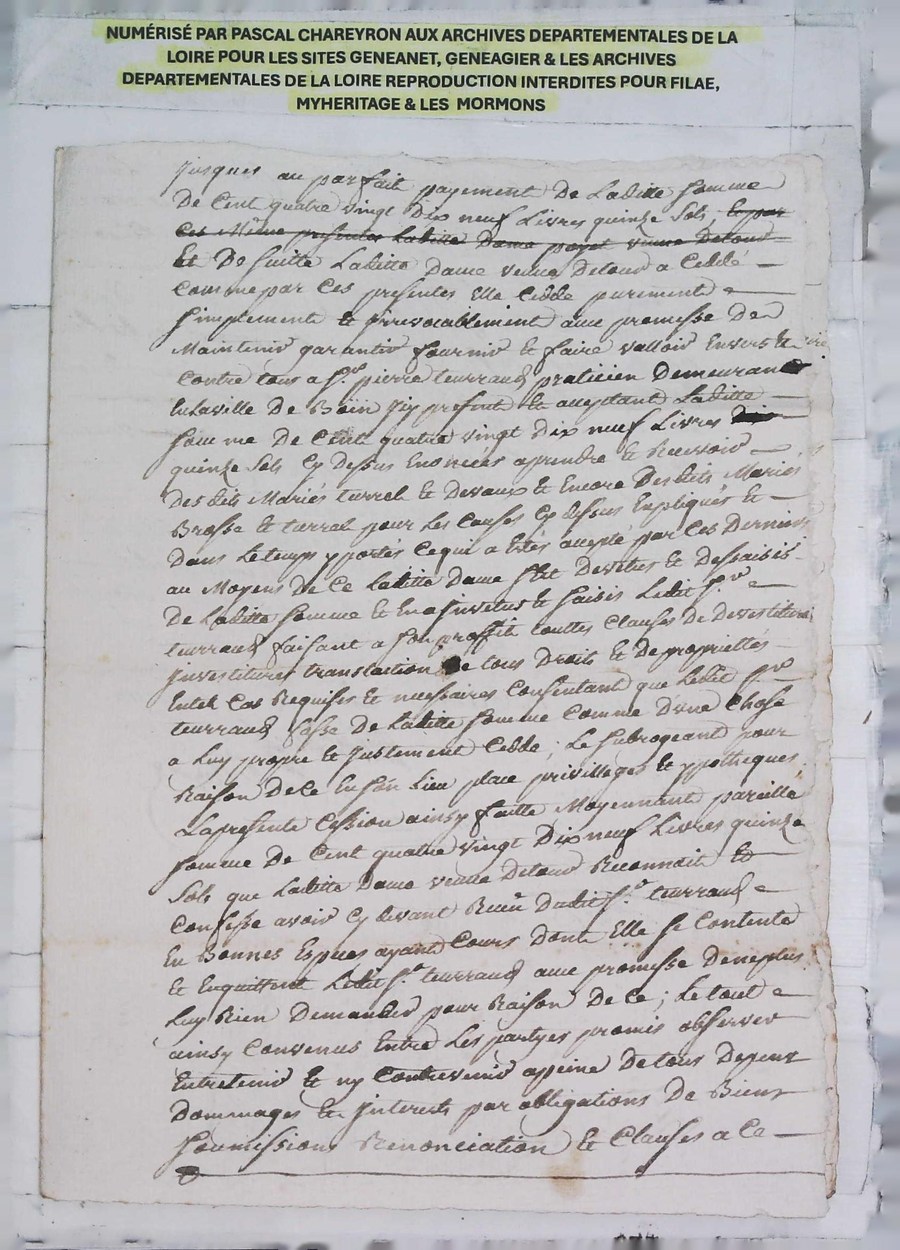 NUMÉRISÉ PAR PASCAL CHAREYRON AUX ARCHIVES DEPARTEMENTALES DE LA
LOIRE POUR LES SITES GENEANET, GENEAGIER & LES ARCHIVES
DEPARTEMENTALES DE LA LOIRE REPRODUCTION INTERDITES POUR FILAE,
MYHERITAGE & LES MORMONS
Jusques au parfait payement De Laditte somme
De Cent quatre vingt Dix neuf Livres quinze sols, Et par
Ces Même presentes Laditte Dame payet veuve Detour
Et De suitte Laditte Dame veuve Detour a Ceddé
Comme par Ces presentes Elle Cedde purement
simplement & irrevocablement avec promesse De
Maintenir garantir fournir & faire valloir Envers &
Contre tous a sr. pierre teurraud praticien Demeurant
En Laville De Boën Icy present & acceptant Laditte
somme De Cent quatre vingt Dix neuf Livres
quinze sols Cy Dessus Enoncées aprendre & Recevoir
Des dits Mariés turrel & Devaux & Encore Des dits Mariés
Brosse & turrel pour Les Causes Cy dessus Expliqués &
Dans Le temps y portés Ce qui a Etés accepté par Ces Derniers
au Moyens De Ce Laditte Dame sest Devetue & Dessaisis
De Laditte somme & En a Invetus & saisis Ledit sr.
teurraud faisant a son proffit touttes Clauses De Devestiture
Investiture translaction De tous Droits & De proprietés
En tel Cas Requises & necessaires Consentant que Ledit sr
teurraud fasse De Laditte somme Comme D'une Chose
a Luy propre & Justement Cedde; Le subrogeant pour
Raison De Ce En son Lieu place privilleges & ypotheques.
La presente Cession ainsy faitte Moyennant pareille
somme De Cent quatre vingt Dix neuf Livres quinze
sols que Laditte Dame veuve Detour Reconnait &
Confesse avoir Cy devant Recue Dudit sr. teurraud
En Bonnes Especes ayant Cours Dont Elle se Contente
& En quittent Ledit sr. teurraud avec promesse De ne plus
Luy Rien Demander pour Raison De Ce; Le tout
ainsy Convenus Entre Les partyes promis observer
Entretenir & ny Contrevenir apeine De tous Depens
Dommages & Interests par obligations De Biens
soumissions Renonciation & Clauses a Ce